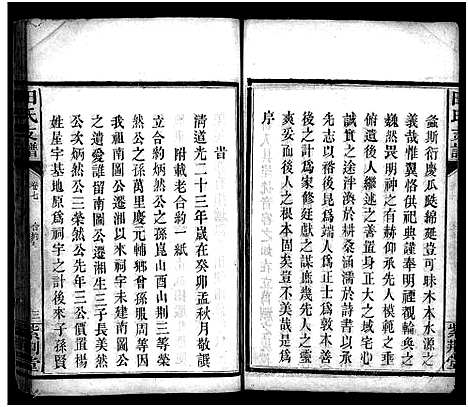 螽斯衍慶瓜瓞綿延豈可昧木本水水之
義哉惟冀恪供祀典謹奉明禋觀輪奐之
巍然畏明神之有赫仰承先人模範之垂
度後人繼述之善置身正大之域宅心
之途泮渙於耕桑涵濡於詩書以承
先志以裕後昆爲端人爲正士此區區
之後之計爲家修廷獻之謀庶幾先人之
爽妥而後人之根本固矣豈不美哉是爲
序
昔
清道光二十三年歲在癸卯孟秋月敬譔
附載老合約一紙
立合約炳然公之孫崑山酉山荆三等榮
然公之孫萬里慶元輔鄉會孫服周等因
祖南圖公遷湘以來祠宇未建南圖公
之遺愛誰留南圖公遷湘生三子長美然
公次炳然公三榮然公先年公價置楊
姓屋宇基地原爲祠宇之計後來子孫賢
田氏支譜
卷七
合約
三
紫荆堂